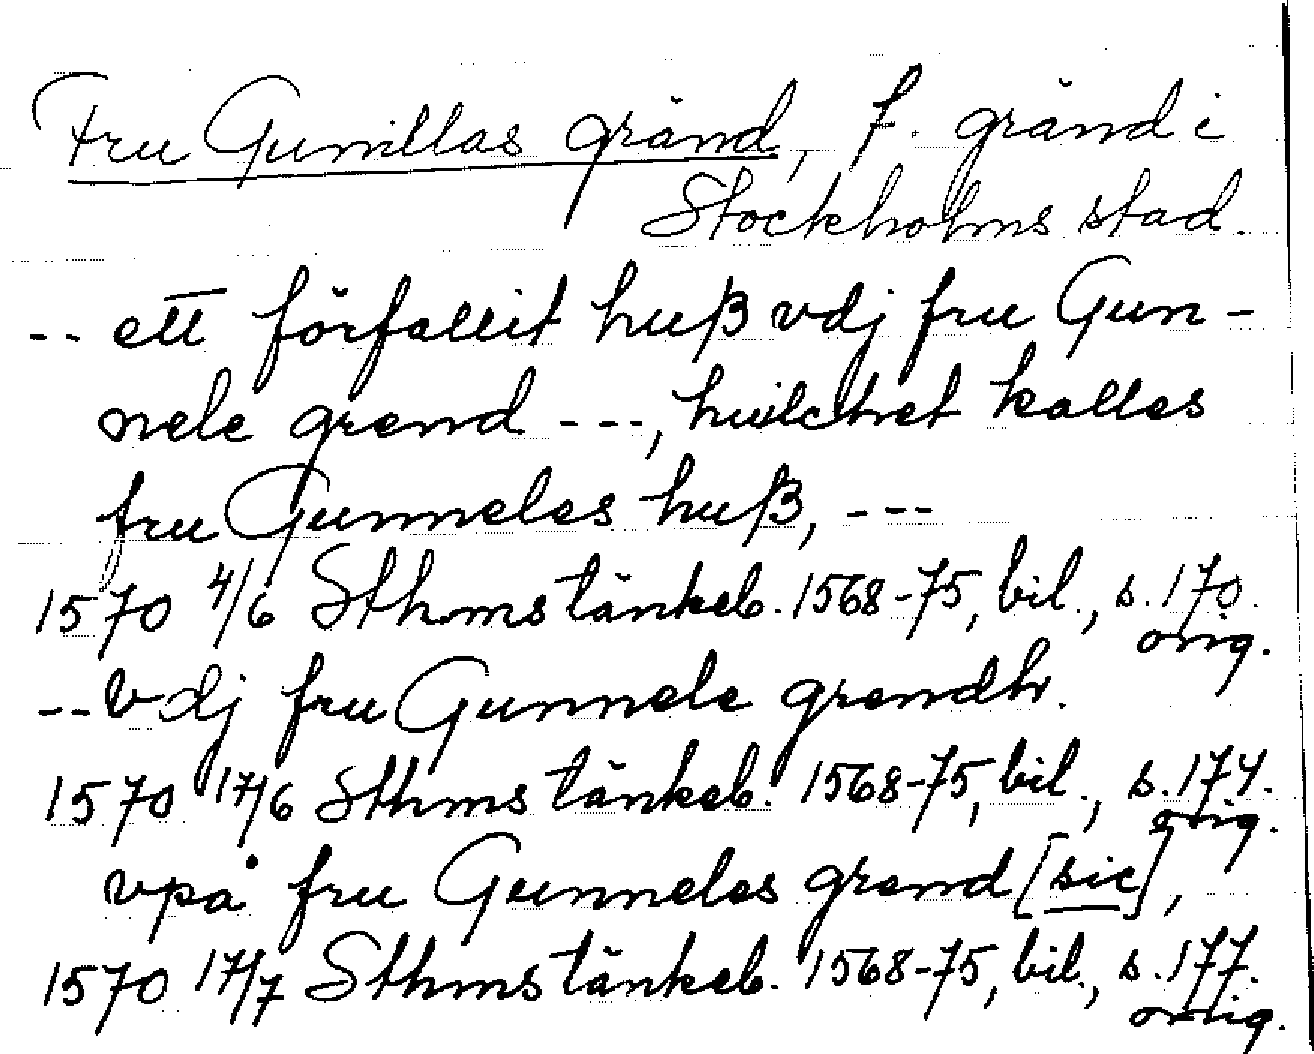 Fru Gunillas gränd, f. gränd i
Stockholms stad.
-- ett förfallit huß vdj fru Gun-
nele grend ---, huilchet kalles
fru Gunneles huß, ---
1570 4/6 Sthms tänkeb. 1568-75, bil., s. 170.
orig.
-- vdj fru Gunnele grendh.
1570 17/6 Sthms tänkeb. 1568-75, bil., s. 174.
orig.
vpå fru Gunneles grend [sic],
1570 17/7 Sthms tänkeb. 1568-75, bil., s. 177.
orig.